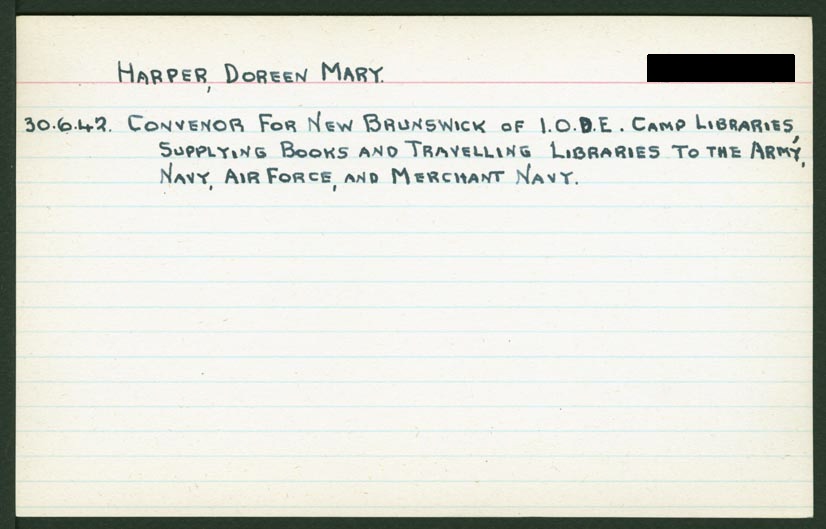 HARPER, DOREEN MARY.
30.6.42. CONVENOR FOR NEW BRUNSWICK OF I.O.D.E. CAMP LIBRARIES,
SUPPLYING BOOKS AND TRAVELLING LIBRARIES TO THE ARMY,
NAVY, AIR FORCE, AND MERCHANT NAVY.